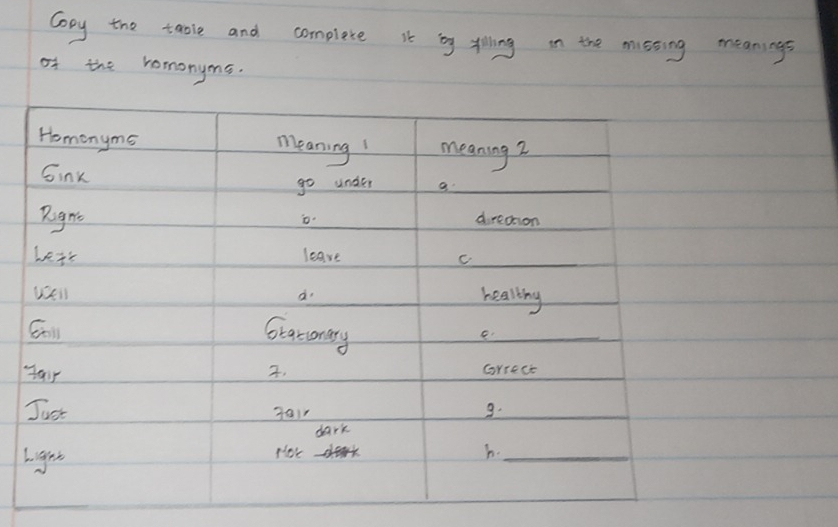 Copy the table and complete it by filling in the missing meanings
of the homonyms.
Homonyms Meaning 1 Meaning 2
Sink go under a.
Right b. direction
Left leave c.
Well d. healthy
Still Stationary e.
Fair f. Correct
Just fair g.
dark
Light Not dark h.